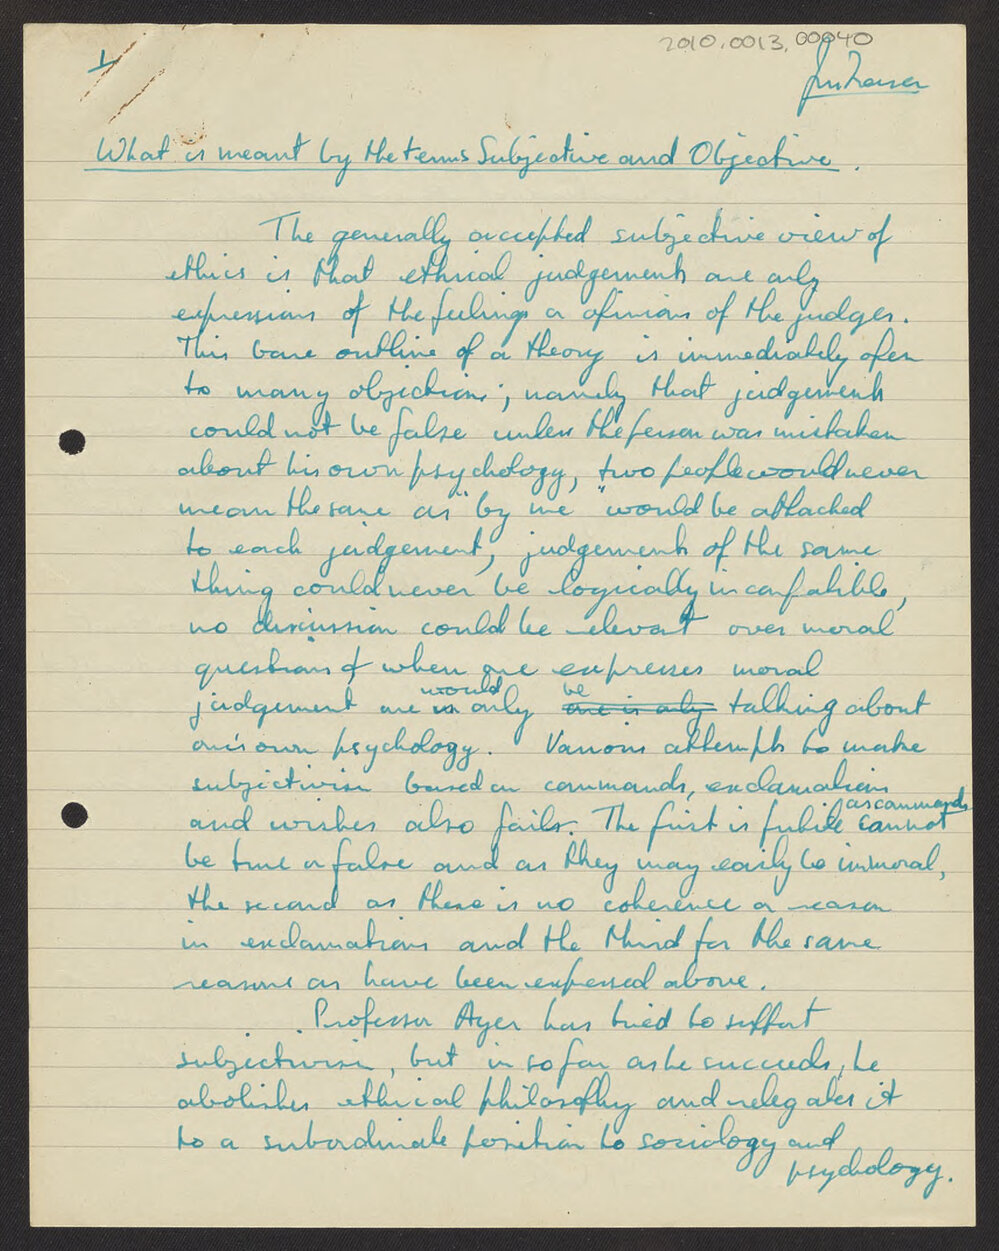 2010.0013.00040
1
What is meant by the terms Subjective and Objective.
The generally accepted subjective view of
ethics is that ethical judgements are only
expressions of the feelings or opinions of the judges.
This bare outline of a theory is immediately open
to many objections; namely that judgements
could not be false unless the person was mistaken
about his own psychology, two people would never
mean the same as "by me" would be attached
to each judgement, judgements of the same
thing could never be logically incompatible,
no discussion could be relevant over moral
questions & when one expresses moral
judgement one would only be one is only talking about
one's own psychology. Various attempts to make
subjectivism based on commands, exclamations
and wishes also fails. The first is futile as commands cannot
be true or false and as they may easily be immoral,
the second as there is no coherence or reason
in exclamations and the third for the same
reasons as have been expressed above.
Professor Ayer has tried to support
subjectivism, but in so far as he succeeds, he
abolishes ethical philosophy and relegates it
to a subordinate position to sociology and
psychology.